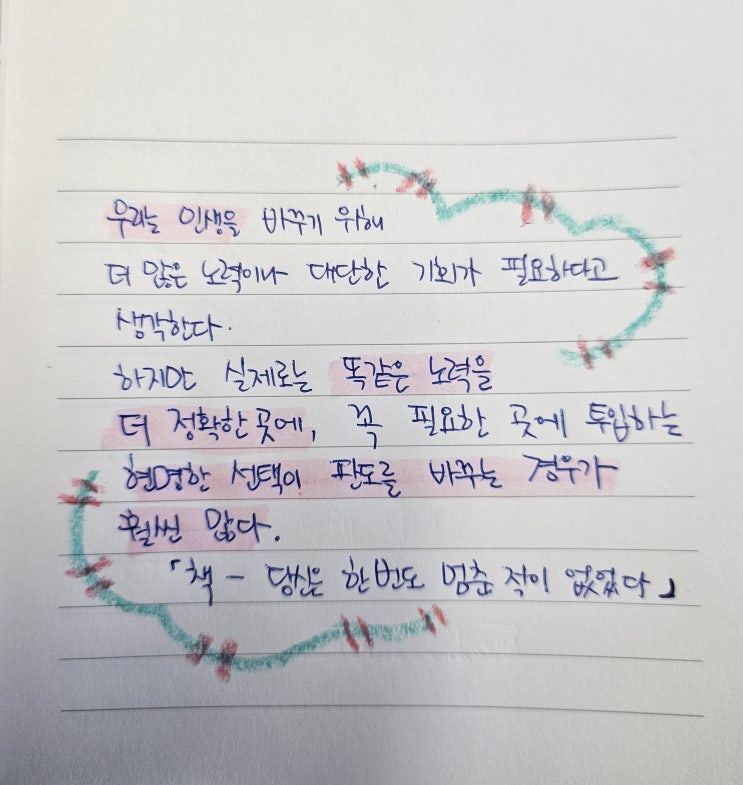 우리는 인생을 바꾸기 위해
더 많은 노력이나 대단한 기회가 필요하다고
생각한다.
하지만 실제로는 똑같은 노력을
더 정확한 곳에, 꼭 필요한 곳에 투입하는
현명한 선택이 판도를 바꾸는 경우가
훨씬 많다.
「책 - 당신은 한번도 멈춘 적이 없었다」